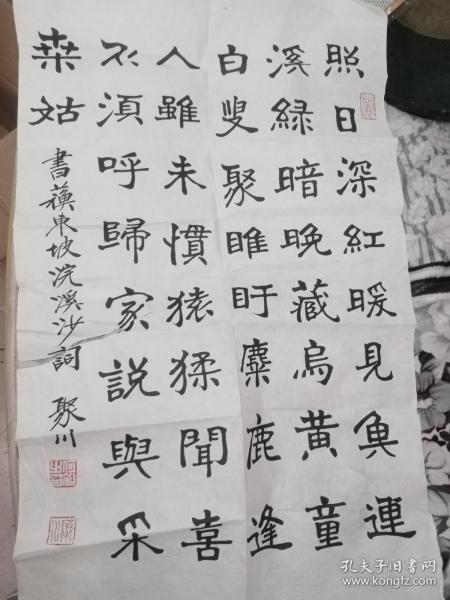 照日深紅暖見奐連
溪緑暗晚藏烏黄童
白叟聚睢盱麋鹿逢
人雖未慣猿猱聞喜
不須呼歸家説與采
桒姑
書蘓東坡浣溪沙詞 聚川
孔夫子旧书网
www.kongfz.com